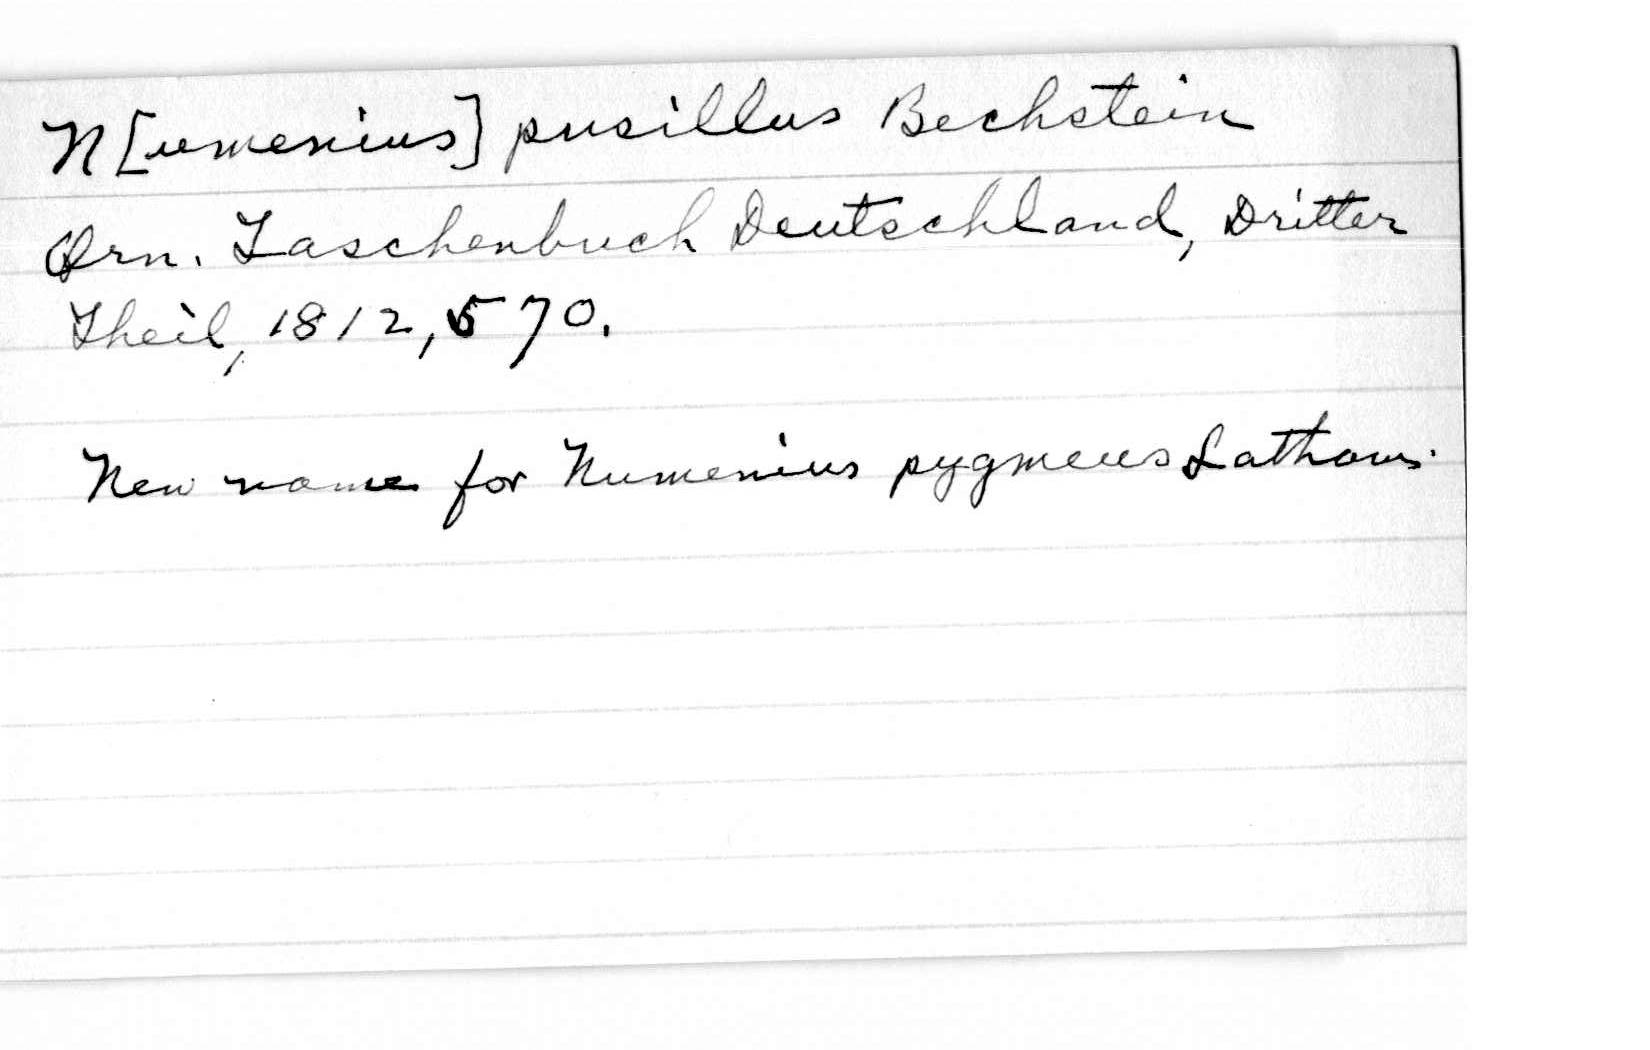 N[umenius] pusillus Bechstein
Orn. Taschenbuch Deutschland, Dritter
Theil, 1812, 570.
New name for Numenius pygmeus Latham.